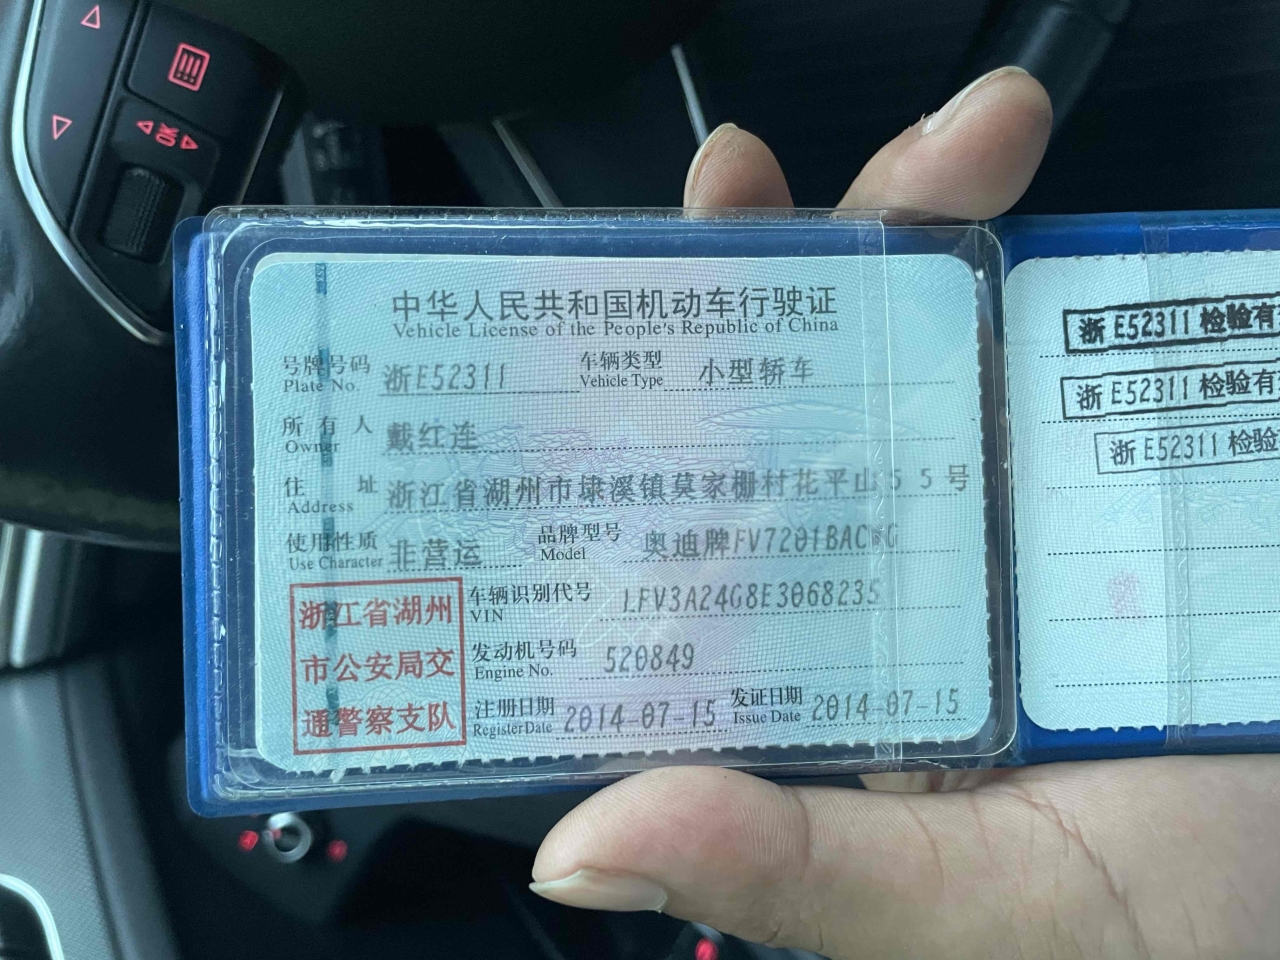 OK
中华人民共和国机动车行驶证
Vehicle License of the People's Republic of China
号牌号码 浙E52311 车辆类型 小型轿车
Plate No. Vehicle Type
所有人 戴红连
Owner
住址 浙江省湖州市埭溪镇莫家栅村花平山55号
Address
使用性质 非营运 品牌型号 奥迪牌FV7201BACWG
Use Character Model
浙江省湖州
市公安局交
通警察支队
车辆识别代号 LFV3A24G8E3068235
VIN
发动机号码 520849
Engine No.
注册日期 2014-07-15 发证日期 2014-07-15
Register Date Issue Date
浙E52311检验有
浙E52311检验有
浙E52311检验